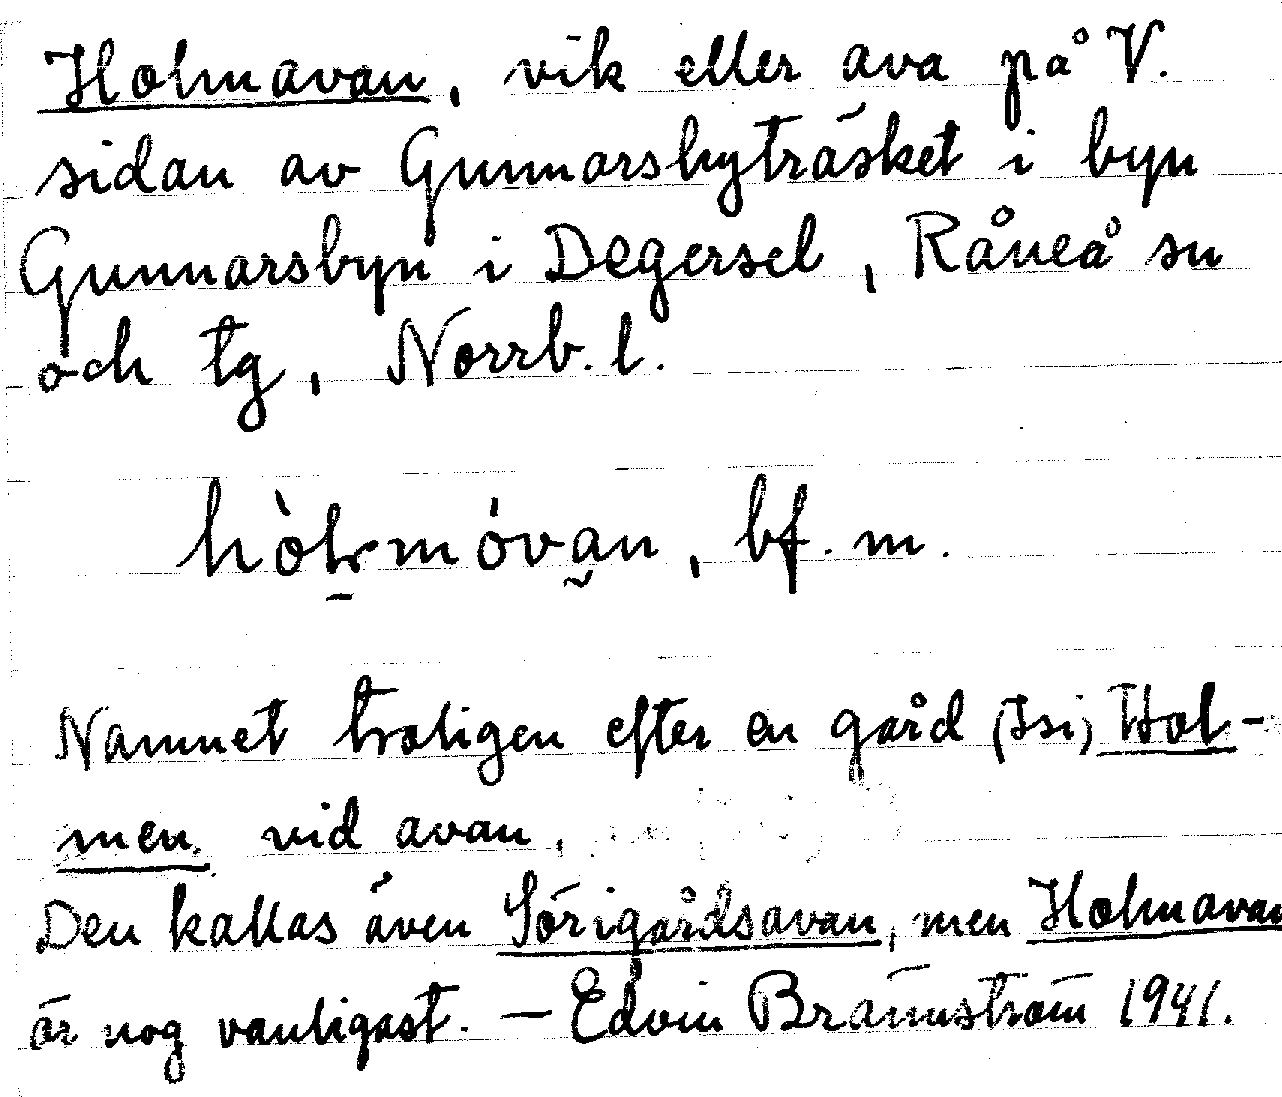 Holmavan, vik eller ava på V.
sidan av Gunnarsbyträsket i byn
Gunnarsbyn i Degersel, Råneå sn
och tg, Norrb. l.
bf. m.
Namnet troligen efter en gård (Isi) Hol-
men vid avan.
Den kallas även Sörigårdsavan, men Holmavan
är nog vanligast. — Edvin Brännström 1941.